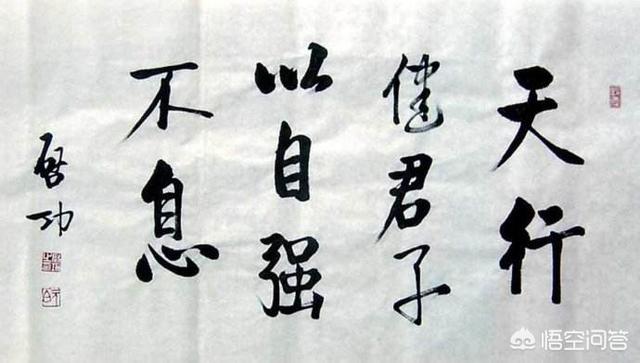 天行
健君子
以自强
不息
启功
悟空问答